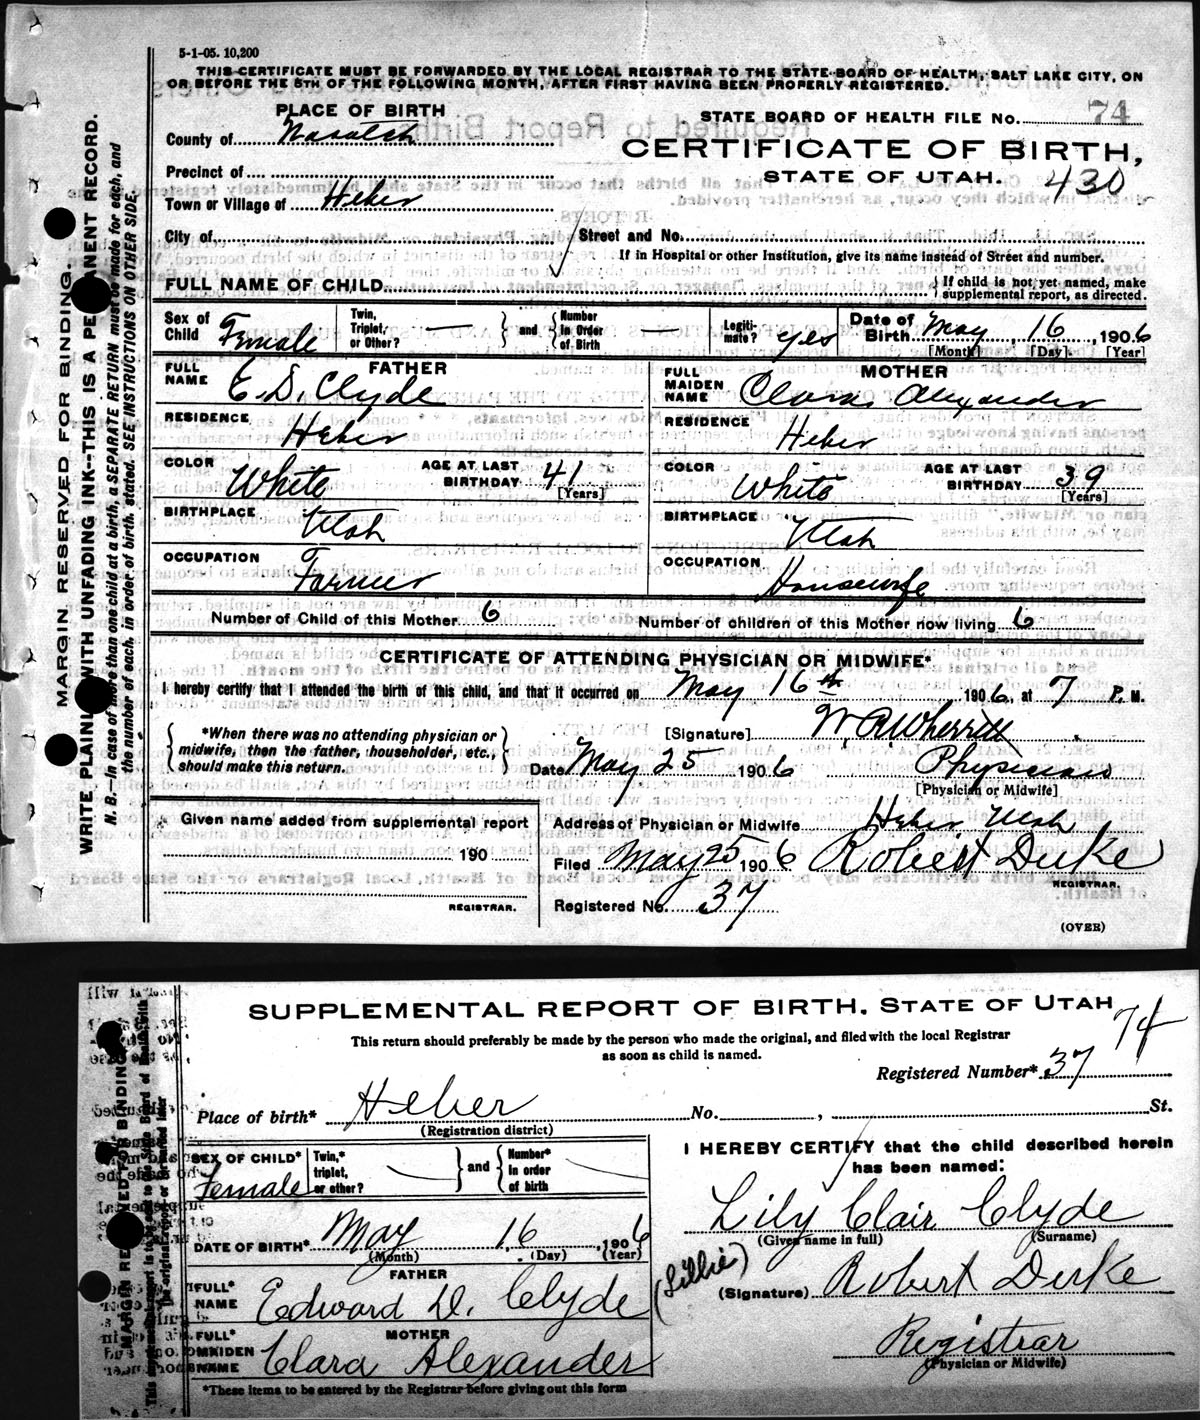 5-1-05. 10,200
THIS CERTIFICATE MUST BE FORWARDED BY THE LOCAL REGISTRAR TO THE STATE BOARD OF HEALTH, SALT LAKE CITY, ON
OR BEFORE THE 5TH OF THE FOLLOWING MONTH, AFTER FIRST HAVING BEEN PROPERLY REGISTERED.
PLACE OF BIRTH
County of Wasatch
Precinct of
Town or Village of Heber
City of
STATE BOARD OF HEALTH FILE No. 74
CERTIFICATE OF BIRTH,
STATE OF UTAH. 430
Street and No.
If in Hospital or other Institution, give its name instead of Street and number.
FULL NAME OF CHILD
If child is not yet named, make
supplemental report, as directed.
Sex of Child Female
Twin, Triplet, or Other? —
and
Number In Order of Birth —
Legiti-mate? yes
Date of Birth May 16, 1906
[Month] [Day] [Year]
FATHER
FULL NAME E. D. Clyde
RESIDENCE Heber
COLOR White AGE AT LAST BIRTHDAY 41
[Years]
BIRTHPLACE Utah
OCCUPATION Farmer
MOTHER
FULL MAIDEN NAME Clara Alexander
RESIDENCE Heber
COLOR White AGE AT LAST BIRTHDAY 39
[Years]
BIRTHPLACE Utah
OCCUPATION Housewife
Number of Child of this Mother 6 Number of children of this Mother now living 6
CERTIFICATE OF ATTENDING PHYSICIAN OR MIDWIFE*
I hereby certify that I attended the birth of this child, and that it occurred on May 16th 1906, at 7 P. M.
*When there was no attending physician or
midwife, then the father, householder, etc.,
should make this return.
[Signature] W. R. Wherritt
Date May 25 1906 Physician
[Physician or Midwife]
Given name added from supplemental report
190
REGISTRAR.
Address of Physician or Midwife Heber Utah
Filed May 25 1906 Robert Duke
REGISTRAR.
Registered No. 37
(OVER)
MARGIN RESERVED FOR BINDING.
WRITE PLAINLY WITH UNFADING INK--THIS IS A PERMANENT RECORD.
N. B.—In case of more than one child at a birth, a SEPARATE RETURN must be made for each, and
the number of each, in order of birth, stated. SEE INSTRUCTIONS ON OTHER SIDE.
SUPPLEMENTAL REPORT OF BIRTH. STATE OF UTAH
74
This return should preferably be made by the person who made the original, and filed with the local Registrar
as soon as child is named.
Registered Number* 37
Place of birth* Heber No. , St.
(Registration district)
SEX OF CHILD* Female
Twin,* triplet, or other?
and
Number* in order of birth
DATE OF BIRTH* May 16, 1906
(Month) (Day) (Year)
FATHER
FULL* NAME Edward D. Clyde
MOTHER
FULL* MAIDEN NAME Clara Alexander
*These items to be entered by the Registrar before giving out this form
I HEREBY CERTIFY that the child described herein
has been named:
Lily Clair Clyde
(Given name in full) (Surname)
(Lillie)
(Signature) Robert Duke
Registrar
(Physician or Midwife)
MARGIN RESERVED FOR BINDING